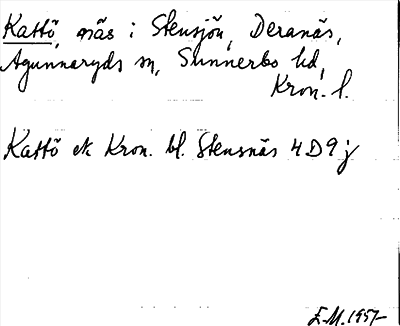 Kattö, näs i Stensjön, Deranäs,
Agunnaryds sn, Sunnerbo hd,
Kron. l.
Kattö ek Kron. bl. Stensnäs 4D9j
E.M. 1957